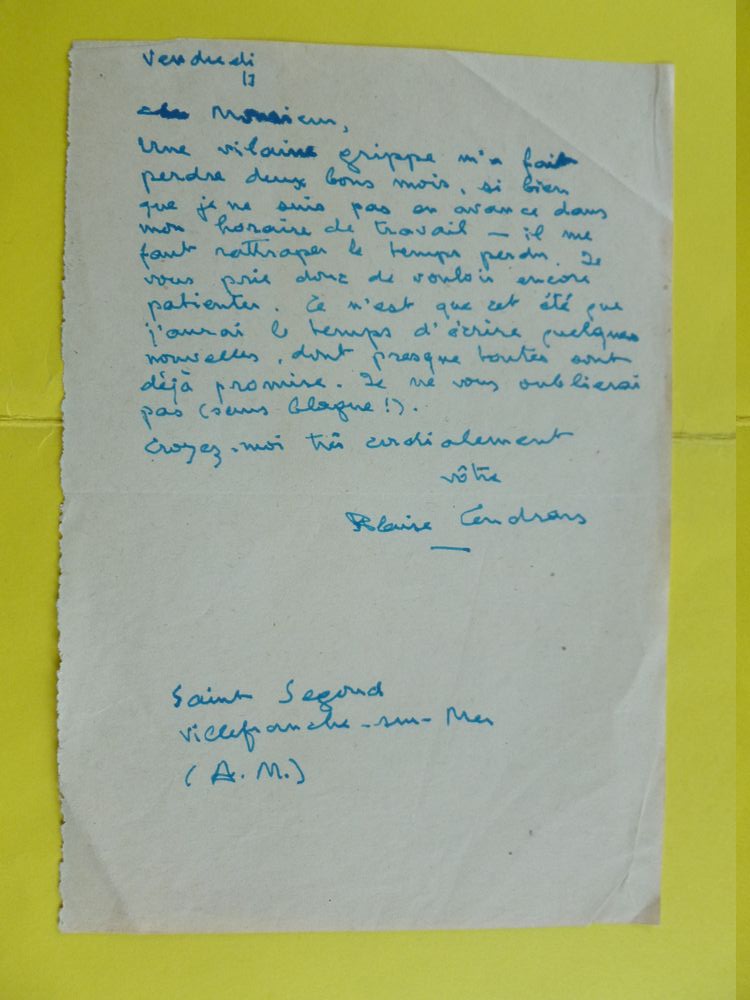 Vendredi
13
cher Monsieur,
Une vilaine grippe m'a fait
perdre deux bons mois, si bien
que je ne suis pas en avance dans
mon horaire de travail — il me
faut rattraper le temps perdu. Je
vous prie donc de vouloir encore
patienter. Ce n'est que cet été que
j'aurai le temps d'écrire quelques
nouvelles, dont presque toutes sont
déjà promise. Je ne vous oublierai
pas (sans blague!).
Croyez-moi très cordialement
vôtre
Blaise Cendrars
Saint Segond
Villefranche-sur-Mer
(A.M.)